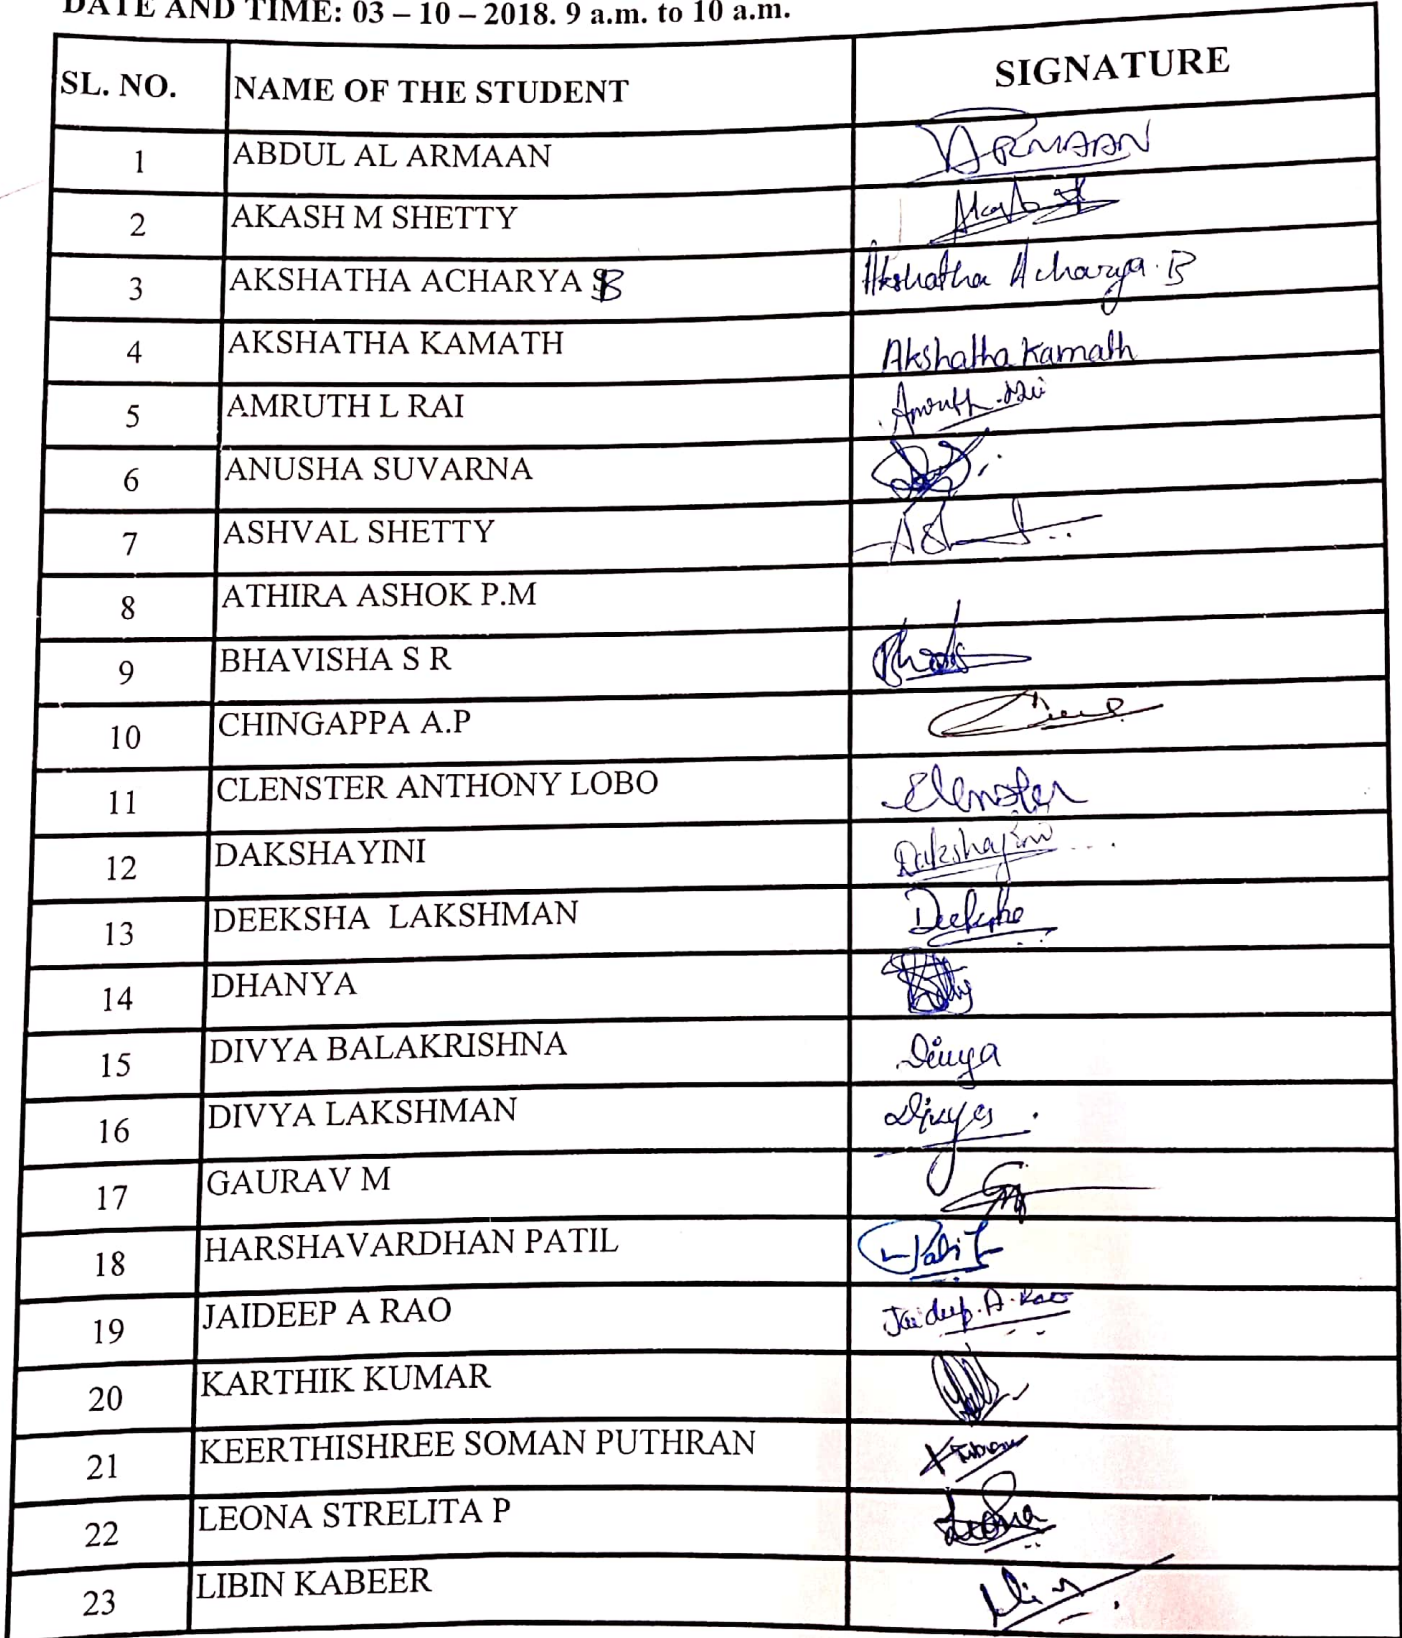 DATE AND TIME: 03 – 10 – 2018. 9 a.m. to 10 a.m.
SL. NO. NAME OF THE STUDENT SIGNATURE
1 ABDUL AL ARMAAN ARMAAN
2 AKASH M SHETTY
3 AKSHATHA ACHARYA B Akshatha Acharya. B
4 AKSHATHA KAMATH Akshatha Kamath
5 AMRUTH L RAI Amruth. Rai
6 ANUSHA SUVARNA
7 ASHVAL SHETTY
8 ATHIRA ASHOK P.M
9 BHAVISHA S R
10 CHINGAPPA A.P
11 CLENSTER ANTHONY LOBO Clenster
12 DAKSHAYINI Dakshayini
13 DEEKSHA LAKSHMAN Deeksha
14 DHANYA
15 DIVYA BALAKRISHNA Divya
16 DIVYA LAKSHMAN
17 GAURAV M
18 HARSHAVARDHAN PATIL
19 JAIDEEP A RAO Jaideep. A. Rao
20 KARTHIK KUMAR
21 KEERTHISHREE SOMAN PUTHRAN
22 LEONA STRELITA P Leona
23 LIBIN KABEER